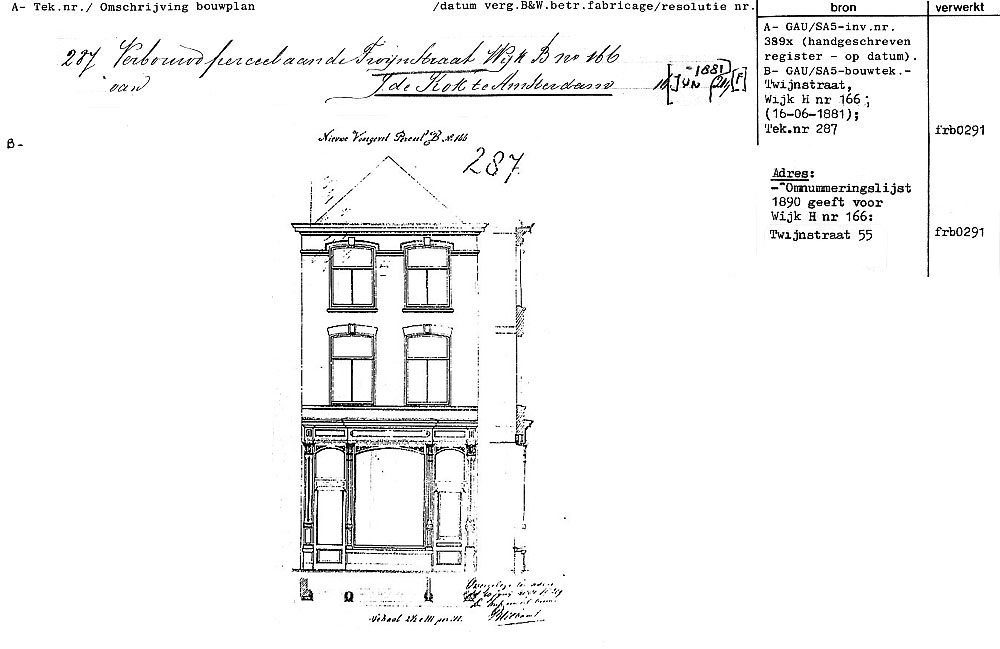 A- Tek.nr./ Omschrijving bouwplan /datum verg.B&W.betr.fabricage/resolutie nr.
bron
verwerkt
287 Verbouwd perceel aan de Twijnstraat Wijk B no 166
van J de Kok te Amsterdam 16 JUN -1881 [F]
A- GAU/SA5-inv.nr.
389x (handgeschreven
register - op datum).
B- GAU/SA5-bouwtek.-
Twijnstraat,
Wijk H nr 166;
(16-06-1881);
Tek.nr 287
frb0291
Adres:
-"Omnummeringslijst
1890 geeft voor
Wijk H nr 166:
Twijnstraat 55
frb0291
B-
Nieuwe Voorgevel Perceel B No 166
287